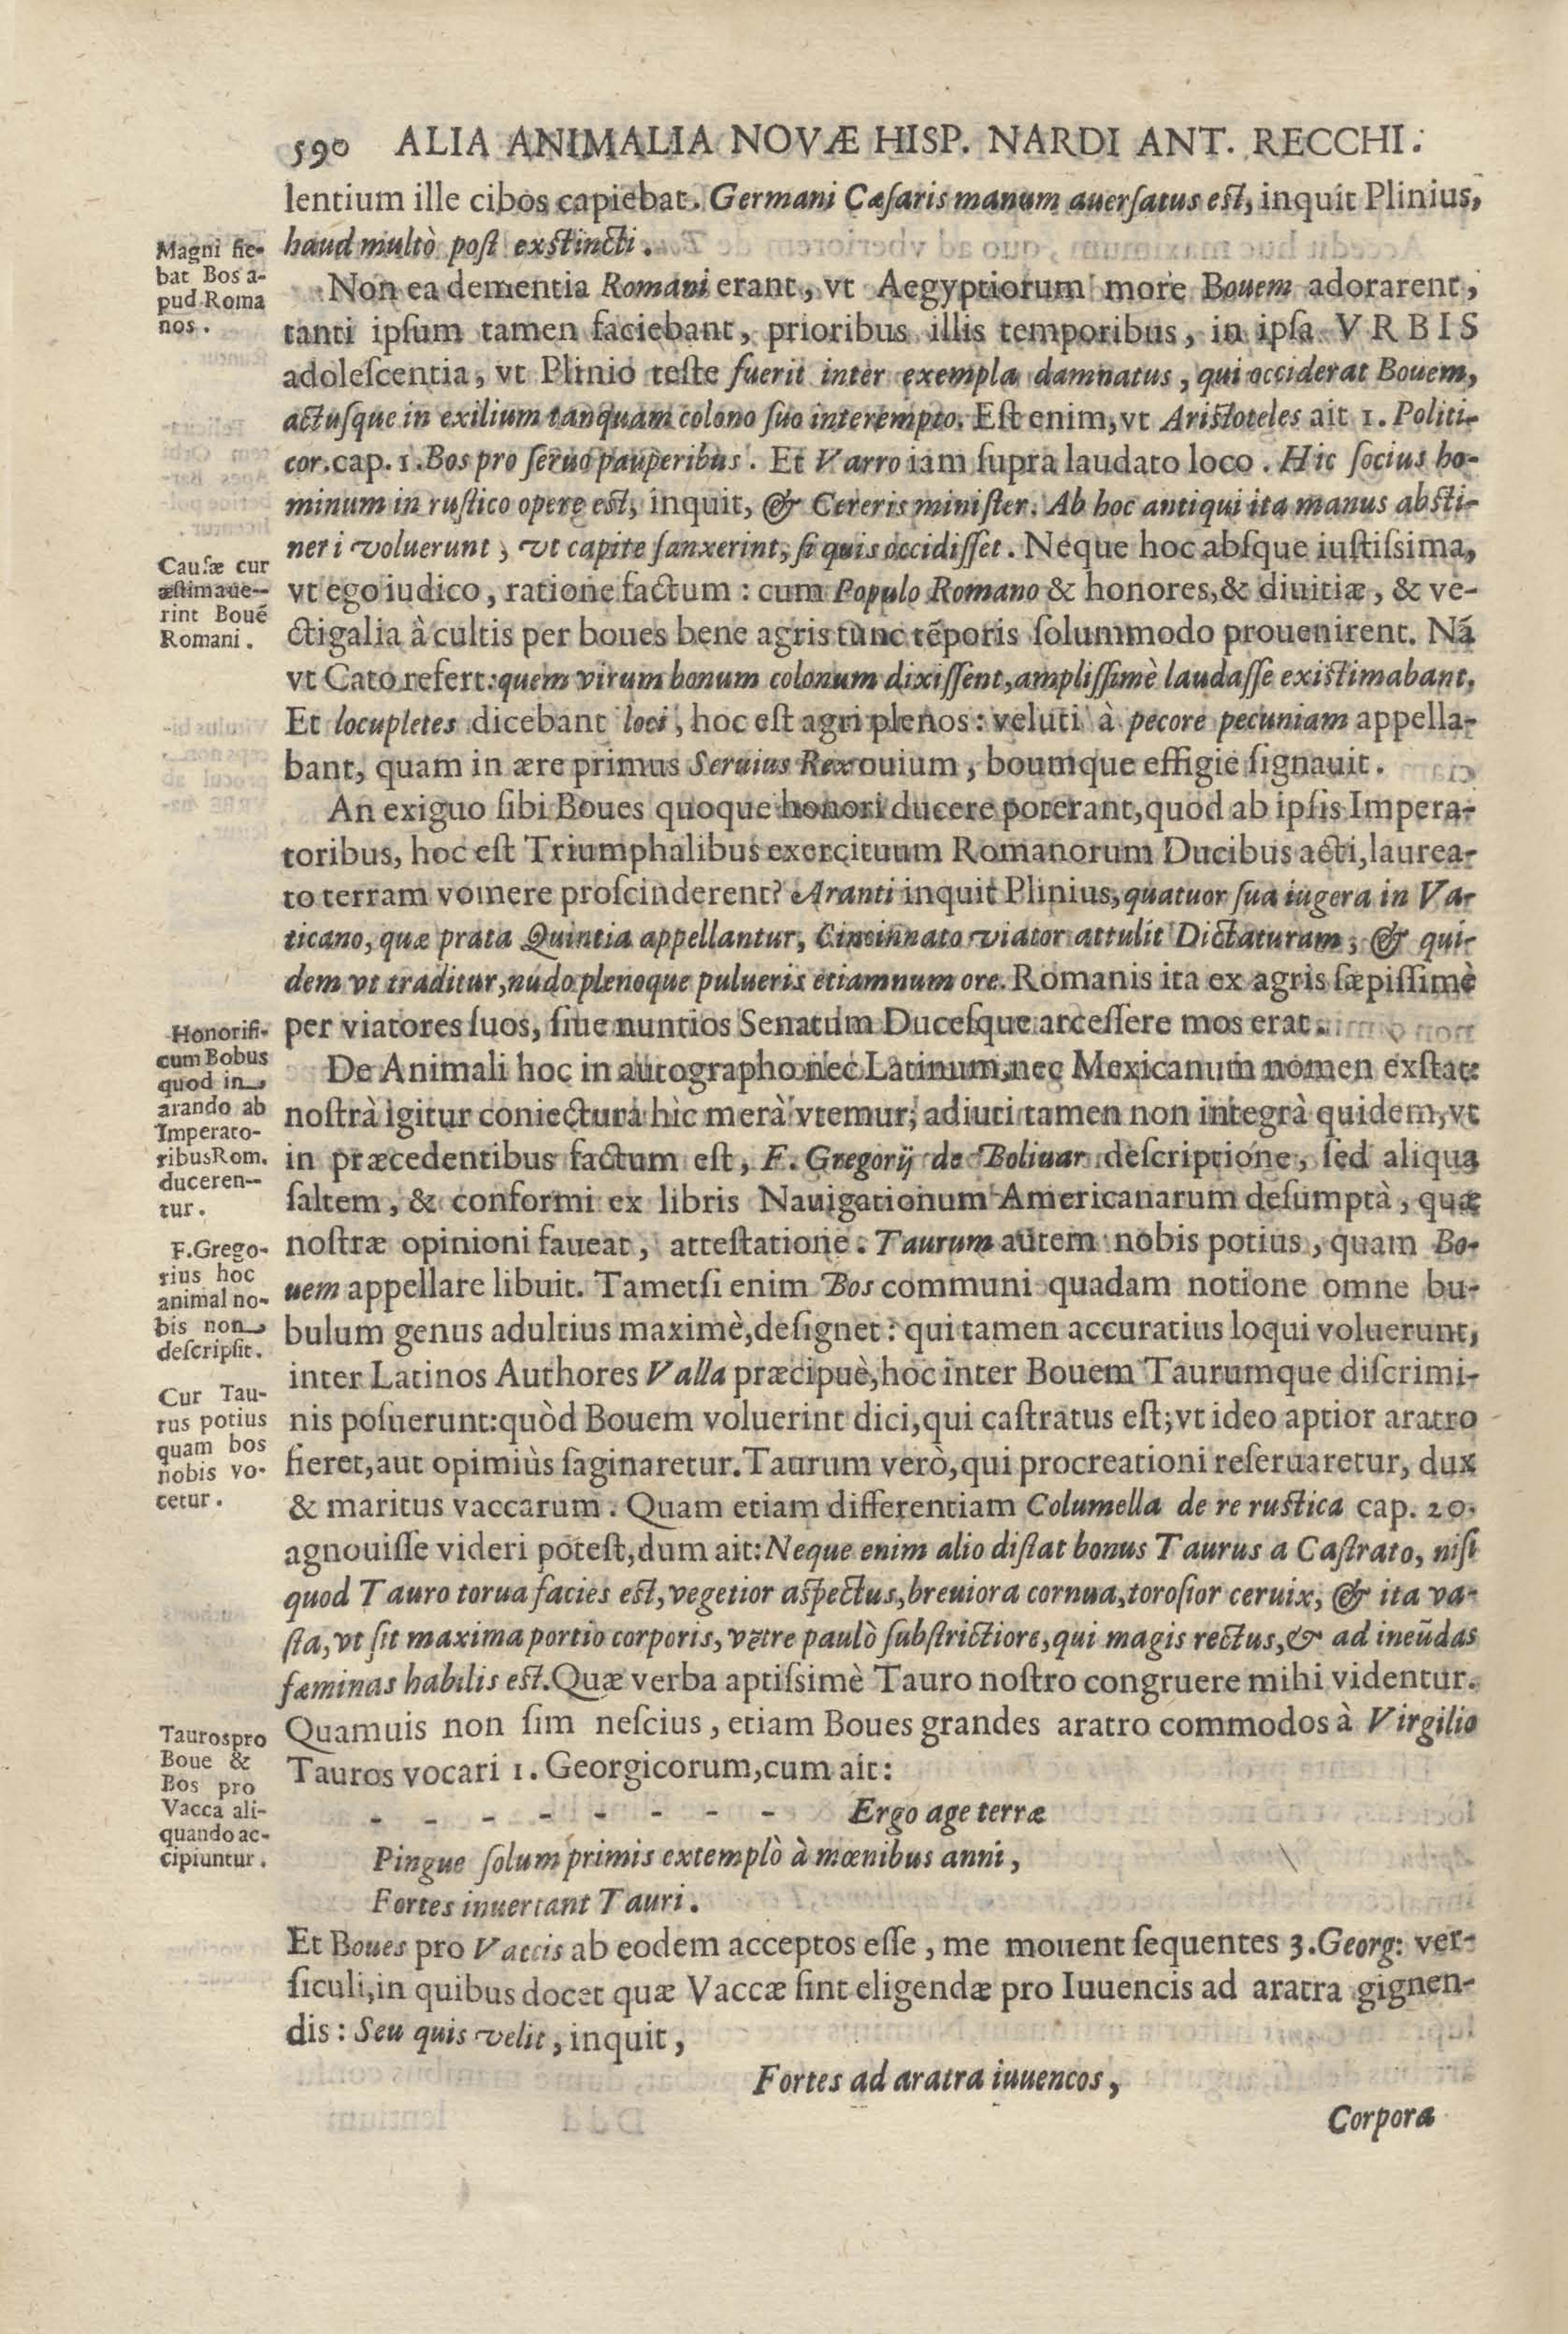 590 ALIA ANIMALIA NOVÆ HISP. NARDI ANT. RECCHI.
lentium ille cibos capiebat. Germani Cæſaris manum auerſatus eſt, inquit Plinius,
haud multò poſt exſtincti.
Magni fie-
bat Bos a-
pud Roma
nos.
Non ea dementia Romani erant, vt Aegyptiorum more Bouem adorarent,
tanti ipſum tamen faciebant, prioribus illis temporibus, in ipſa VRBIS
adoleſcentia, vt Plinio teſte fuerit inter exempla damnatus, qui occiderat Bouem,
actuſque in exilium tanquam colono ſuo interempto. Eſt enim, vt Ariſtoteles ait 1. Politi-
cor. cap. 1. Bos pro ſeruo pauperibus. Et Varro iam ſupra laudato loco. Hic ſocius ho-
minum in ruſtico opere eſt, inquit, & Cereris miniſter. Ab hoc antiqui ita manus abſti-
neri voluerunt, vt capite ſanxerint, ſi quis occidiſſet. Neque hoc abſque iuſtiſsima,
Cauſæ cur
æſtimaue-
rint Bouē
Romani.
vt ego iudico, ratione factum: cum Populo Romano & honores, & diuitiæ, & ve-
ctigalia à cultis per boues bene agris tunc tēporis ſolummodo prouenirent. Nā
vt Cato refert: quem virum bonum colonum dixiſſent, ampliſſimè laudaſſe exiſtimabant.
Et locupletes dicebant loci, hoc eſt agri plenos: veluti à pecore pecuniam appella-
bant, quam in ære primus Seruius Rex ouium, boumque effigie ſignauit.
An exiguo ſibi Boues quoque honori ducere poterant, quod ab ipſis Impera-
toribus, hoc eſt Triumphalibus exercituum Romanorum Ducibus acti, laurea-
to terram vomere proſcinderent? Aranti inquit Plinius, quatuor ſua iugera in Va-
ticano, quæ prata Quintia appellantur, Cincinnato viator attulit Dictaturam, & qui-
dem vt traditur, nudo plenoque pulueris etiamnum ore. Romanis ita ex agris ſæpiſſimè
per viatores ſuos, ſiue nuntios Senatum Duceſque arceſſere mos erat.
Honorifi-
cum Bobus
quod in
arando ab
Imperato-
ribus Rom.
duceren-
tur.
De Animali hoc in autographo nec Latinum, nec Mexicanum nomen exſtat:
noſtrà igitur coniecturà hìc merà vtemur, adiuti tamen non integrà quidem, vt
in præcedentibus factum eſt, F. Gregorij de Boliuar deſcriptione, ſed aliqua
ſaltem, & conformi ex libris Nauigationum Americanarum deſumptà, quæ
F. Grego-
rius hoc
animal no-
bis non
deſcripſit.
noſtræ opinioni faueat, atteſtatione. Taurum autem nobis potius, quam Bo-
uem appellare libuit. Tametſi enim Bos communi quadam notione omne bu-
bulum genus adultius maximè, deſignet: qui tamen accuratius loqui voluerunt,
inter Latinos Authores Valla præcipuè, hoc inter Bouem Taurumque diſcrimi-
Cur Tau-
rus potius
quam bos
nobis vo-
cetur.
nis poſuerunt: quòd Bouem voluerint dici, qui caſtratus eſt; vt ideo aptior aratro
fieret, aut opimiùs ſaginaretur. Taurum verò, qui procreationi reſeruaretur, dux
& maritus vaccarum. Quam etiam differentiam Columella de re ruſtica cap. 20.
agnouiſſe videri poteſt, dum ait: Neque enim alio diſtat bonus Taurus a Caſtrato, niſi
quod Tauro torua facies eſt, vegetior aſpectus, breuiora cornua, toroſior ceruix, & ita va-
ſta, vt ſit maxima portio corporis, vētre paulò ſubſtrictiore, qui magis rectus, & ad ineūdas
fæminas habilis eſt. Quæ verba aptiſsimè Tauro noſtro congruere mihi videntur.
Quamuis non ſim neſcius, etiam Boues grandes aratro commodos à Virgilio
Tauros pro
Boue &
Bos pro
Vacca ali-
quando ac-
cipiuntur.
Tauros vocari 1. Georgicorum, cum ait:
- - - - - - - - Ergo age terræ
Pingue ſolum primis extemplò à mœnibus anni,
Fortes inuertant Tauri.
Et Boues pro Vaccis ab eodem acceptos eſſe, me mouent ſequentes 3. Georg: ver-
ſiculi, in quibus docet quæ Vaccæ ſint eligendæ pro Iuuencis ad aratra gignen-
dis: Seu quis velit, inquit,
Fortes ad aratra iuuencos,
Corpora